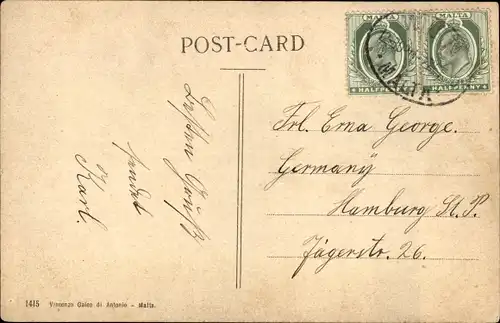 POST-CARD
MALTA
MALTA
HALFPENNY
HALFPENNY
MALTA
Besten Gruß
sendet
Karl.
Frl. Erna George.
Germany
Hamburg St. P.
Jägerstr. 26.
1415 Vincenzo Galea di Antonio - Malta.